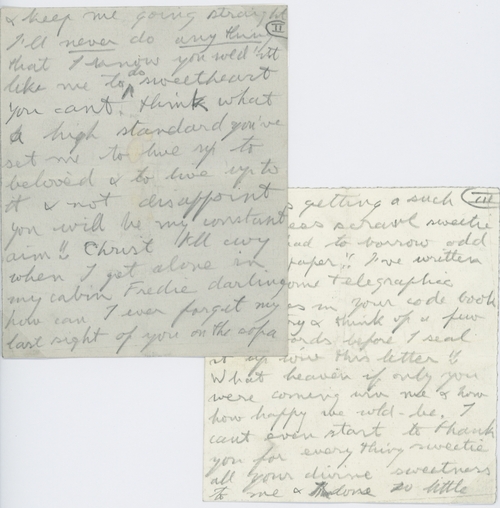 & keep me going straight
II
I'll never do anything
that I know you wld'nt
like me to do sweetheart
You cant think what
a high standard you've
set me to live up to
beloved & to live up to
it & not disappoint
you will be my constant
aim!! Christ I'll cwy
when I get alone in
my cabin Fredie darling
how can I ever forget my
last sight of you on the
s getting a such
III
scrawl sweetie
ad to borrow odd
paper!! I've written
ome telegraphic
es in your code book
ry & think of a few
ords before I seal
it up wiv this letter!!
What heaven if only you
were coming wiv me & how
how happy we wld be. I
cant even start to thank
you for everything sweetie
all your divine sweetness
to me & done so little